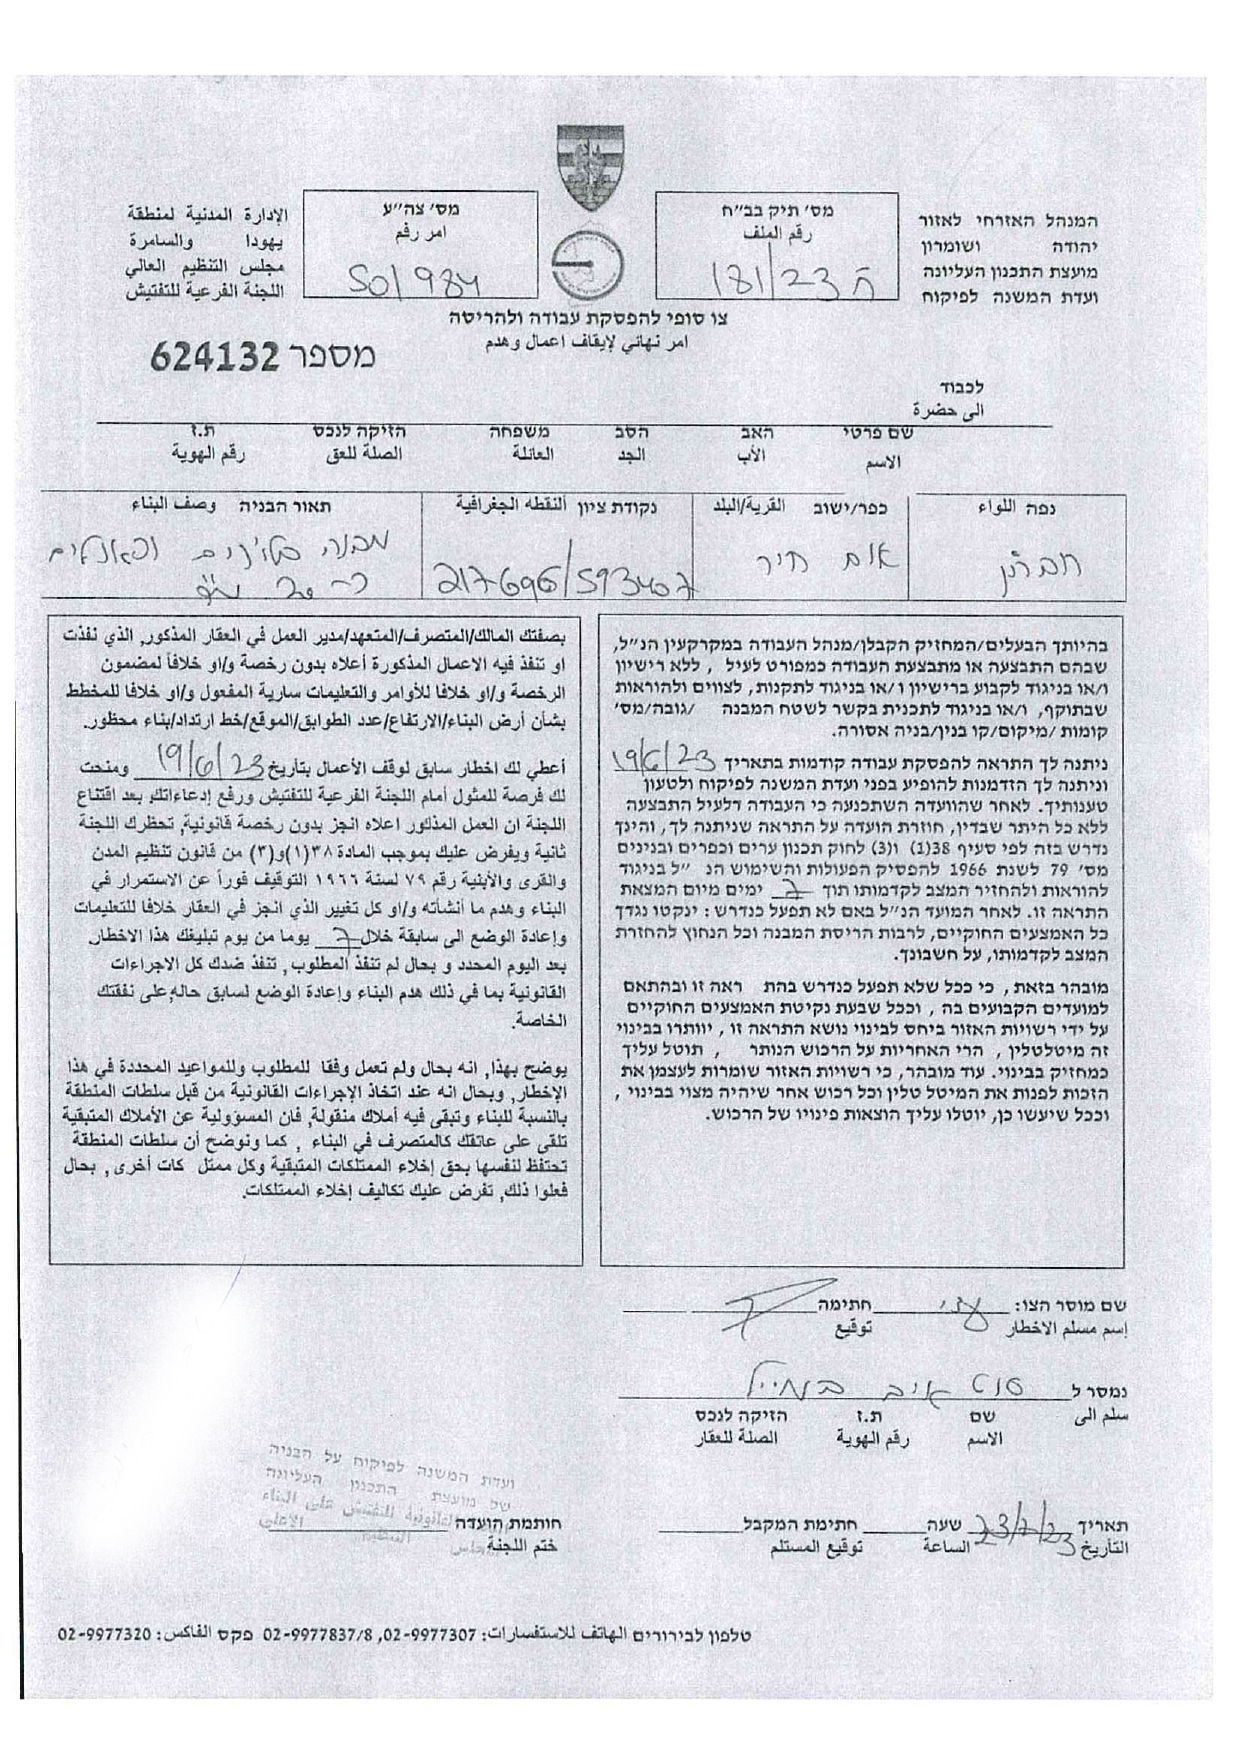 המנהל האזרחי לאזור
יהודה ושומרון
מועצת התכנון העליונה
ועדת המשנה לפיקוח
מס׳ תיק בב״ח
رقم الملف
ח 181/23
מס׳ צה״ע
امر رقم
50/984
الإدارة المدنية لمنطقة
يهودا والسامرة
مجلس التنظيم العالي
اللجنة الفرعية للتفتيش
צו סופי להפסקת עבודה ולהריסה
امر نهائي لإيقاف اعمال وهدم
מספר 624132
לכבוד
الى حضرة
שם פרטי האב הסב משפחה הזיקה לנכס ת.ז
الاسم الأب الجد العائلة الصلة للعق رقم الهوية
נפה اللواء כפר/ישוב القرية/البلد נקודת ציון النقطه الجغرافية תאור הבניה وصف البناء
חברון אום חיר 217696/593407 מבנה
כ-20 מ"ר
בהיותך הבעלים/המחזיק הקבלן/מנהל העבודה במקרקעין הנ״ל,
שבהם התבצעה או מתבצעת העבודה כמפורט לעיל , ללא רישיון
ו/או בניגוד לקבוע ברישיון ו /או בניגוד לתקנות, לצווים ולהוראות
שבתוקף, ו/או בניגוד לתכנית בקשר לשטח המבנה /גובה/מס׳
קומות /מיקום/קו בנין/בניה אסורה.
ניתנה לך התראה להפסקת עבודה קודמות בתאריך 19/6/23
וניתנה לך הזדמנות להופיע בפני ועדת המשנה לפיקוח ולטעון
טענותיך. לאחר שהוועדה השתכנעה כי העבודה דלעיל התבצעה
ללא כל היתר שבדין, חוזרת הועדה על התראה שניתנה לך, והינך
נדרש בזה לפי סעיף 38(1) ו(3) לחוק תכנון ערים וכפרים ובנינים
מס׳ 79 לשנת 1966 להפסיק הפעולות והשימוש הנ ״ל בניגוד
להוראות ולהחזיר המצב לקדמותו תוך 7 ימים מיום המצאת
התראה זו. לאחר המועד הנ״ל באם לא תפעל כנדרש : ינקטו נגדך
כל האמצעים החוקיים, לרבות הריסת המבנה וכל הנחוץ להחזרת
המצב לקדמותו, על חשבונך.
מובהר בזאת , כי ככל שלא תפעל כנדרש בהת ראה זו ובהתאם
למועדים הקבועים בה , וככל שבעת נקיטת האמצעים החוקיים
על ידי רשויות האזור ביחס לבינוי נושא התראה זו , יוותרו בבינוי
זה מיטלטלין , הרי האחריות על הרכוש הנותר , תוטל עליך
כמחזיק בבינוי. עוד מובהר, כי רשויות האזור שומרות לעצמן את
הזכות לפנות את המיטל טלין וכל רכוש אחר שיהיה מצוי בבינוי ,
וככל שיעשו כן, יוטלו עליך הוצאות פינויו של הרכוש.
بصفتك المالك/المتصرف/المتعهد/مدير العمل في العقار المذكور, الذي نفذت
او تنفذ فيه الاعمال المذكورة أعلاه بدون رخصة و/او خلافاً لمضمون
الرخصة و/او خلافا للأوامر والتعليمات سارية المفعول و/او خلافا للمخطط
بشأن أرض البناء/الارتفاع/عدد الطوابق/الموقع/خط ارتداد/بناء محظور.
أعطي لك اخطار سابق لوقف الأعمال بتاريخ 19/6/23 ومنحت
لك فرصة للمثول أمام اللجنة الفرعية للتفتيش ورفع إدعاءاتك, بعد اقتناع
اللجنة ان العمل المذكور اعلاه انجز بدون رخصة قانونية, تحظرك اللجنة
ثانية ويفرض عليك بموجب المادة ٣٨(١)و(٣) من قانون تنظيم المدن
والقرى والأبنية رقم ٧٩ لسنة ١٩٦٦ التوقيف فوراً عن الاستمرار في
البناء وهدم ما أنشأته و/او كل تغيير الذي انجز في العقار خلافا للتعليمات
وإعادة الوضع الى سابقة خلال 7 يوما من يوم تبليغك هذا الاخطار
بعد اليوم المحدد و بحال لم تنفذ المطلوب , تنفذ ضدك كل الاجراءات
القانونية بما في ذلك هدم البناء وإعادة الوضع لسابق حاله, على نفقتك
الخاصة.
يوضح بهذا, انه بحال ولم تعمل وفقا للمطلوب وللمواعيد المحددة في هذا
الإخطار, وبحال انه عند اتخاذ الإجراءات القانونية من قبل سلطات المنطقة
بالنسبة للبناء وتبقى فيه أملاك منقولة, فان المسؤولية عن الأملاك المتبقية
تلقى على عاتقك كالمتصرف في البناء , كما ونوضح أن سلطات المنطقة
تحتفظ لنفسها بحق إخلاء الممتلكات المتبقية وكل ممتل كات أخرى , بحال
فعلوا ذلك, تفرض عليك تكاليف إخلاء الممتلكات.
שם מוסר הצו: חתימה
إسم مسلم الاخطار توقيع
נמסר ל
سلم الى
שם ת.ז הזיקה לנכס
الاسم رقم الهوية الصلة للعقار
ועדת המשנה לפיקוח על הבניה
של מועצת התכנון העליונה
תאריך 23/7/23 שעה חתימת המקבל חותמת הועדה
التأريخ الساعة توقيع المستلم ختم اللجنة
טלפון לבירורים الهاتف للاستفسارات: 02-9977307, 02-9977837/8 פקס الفاكس: 02-9977320